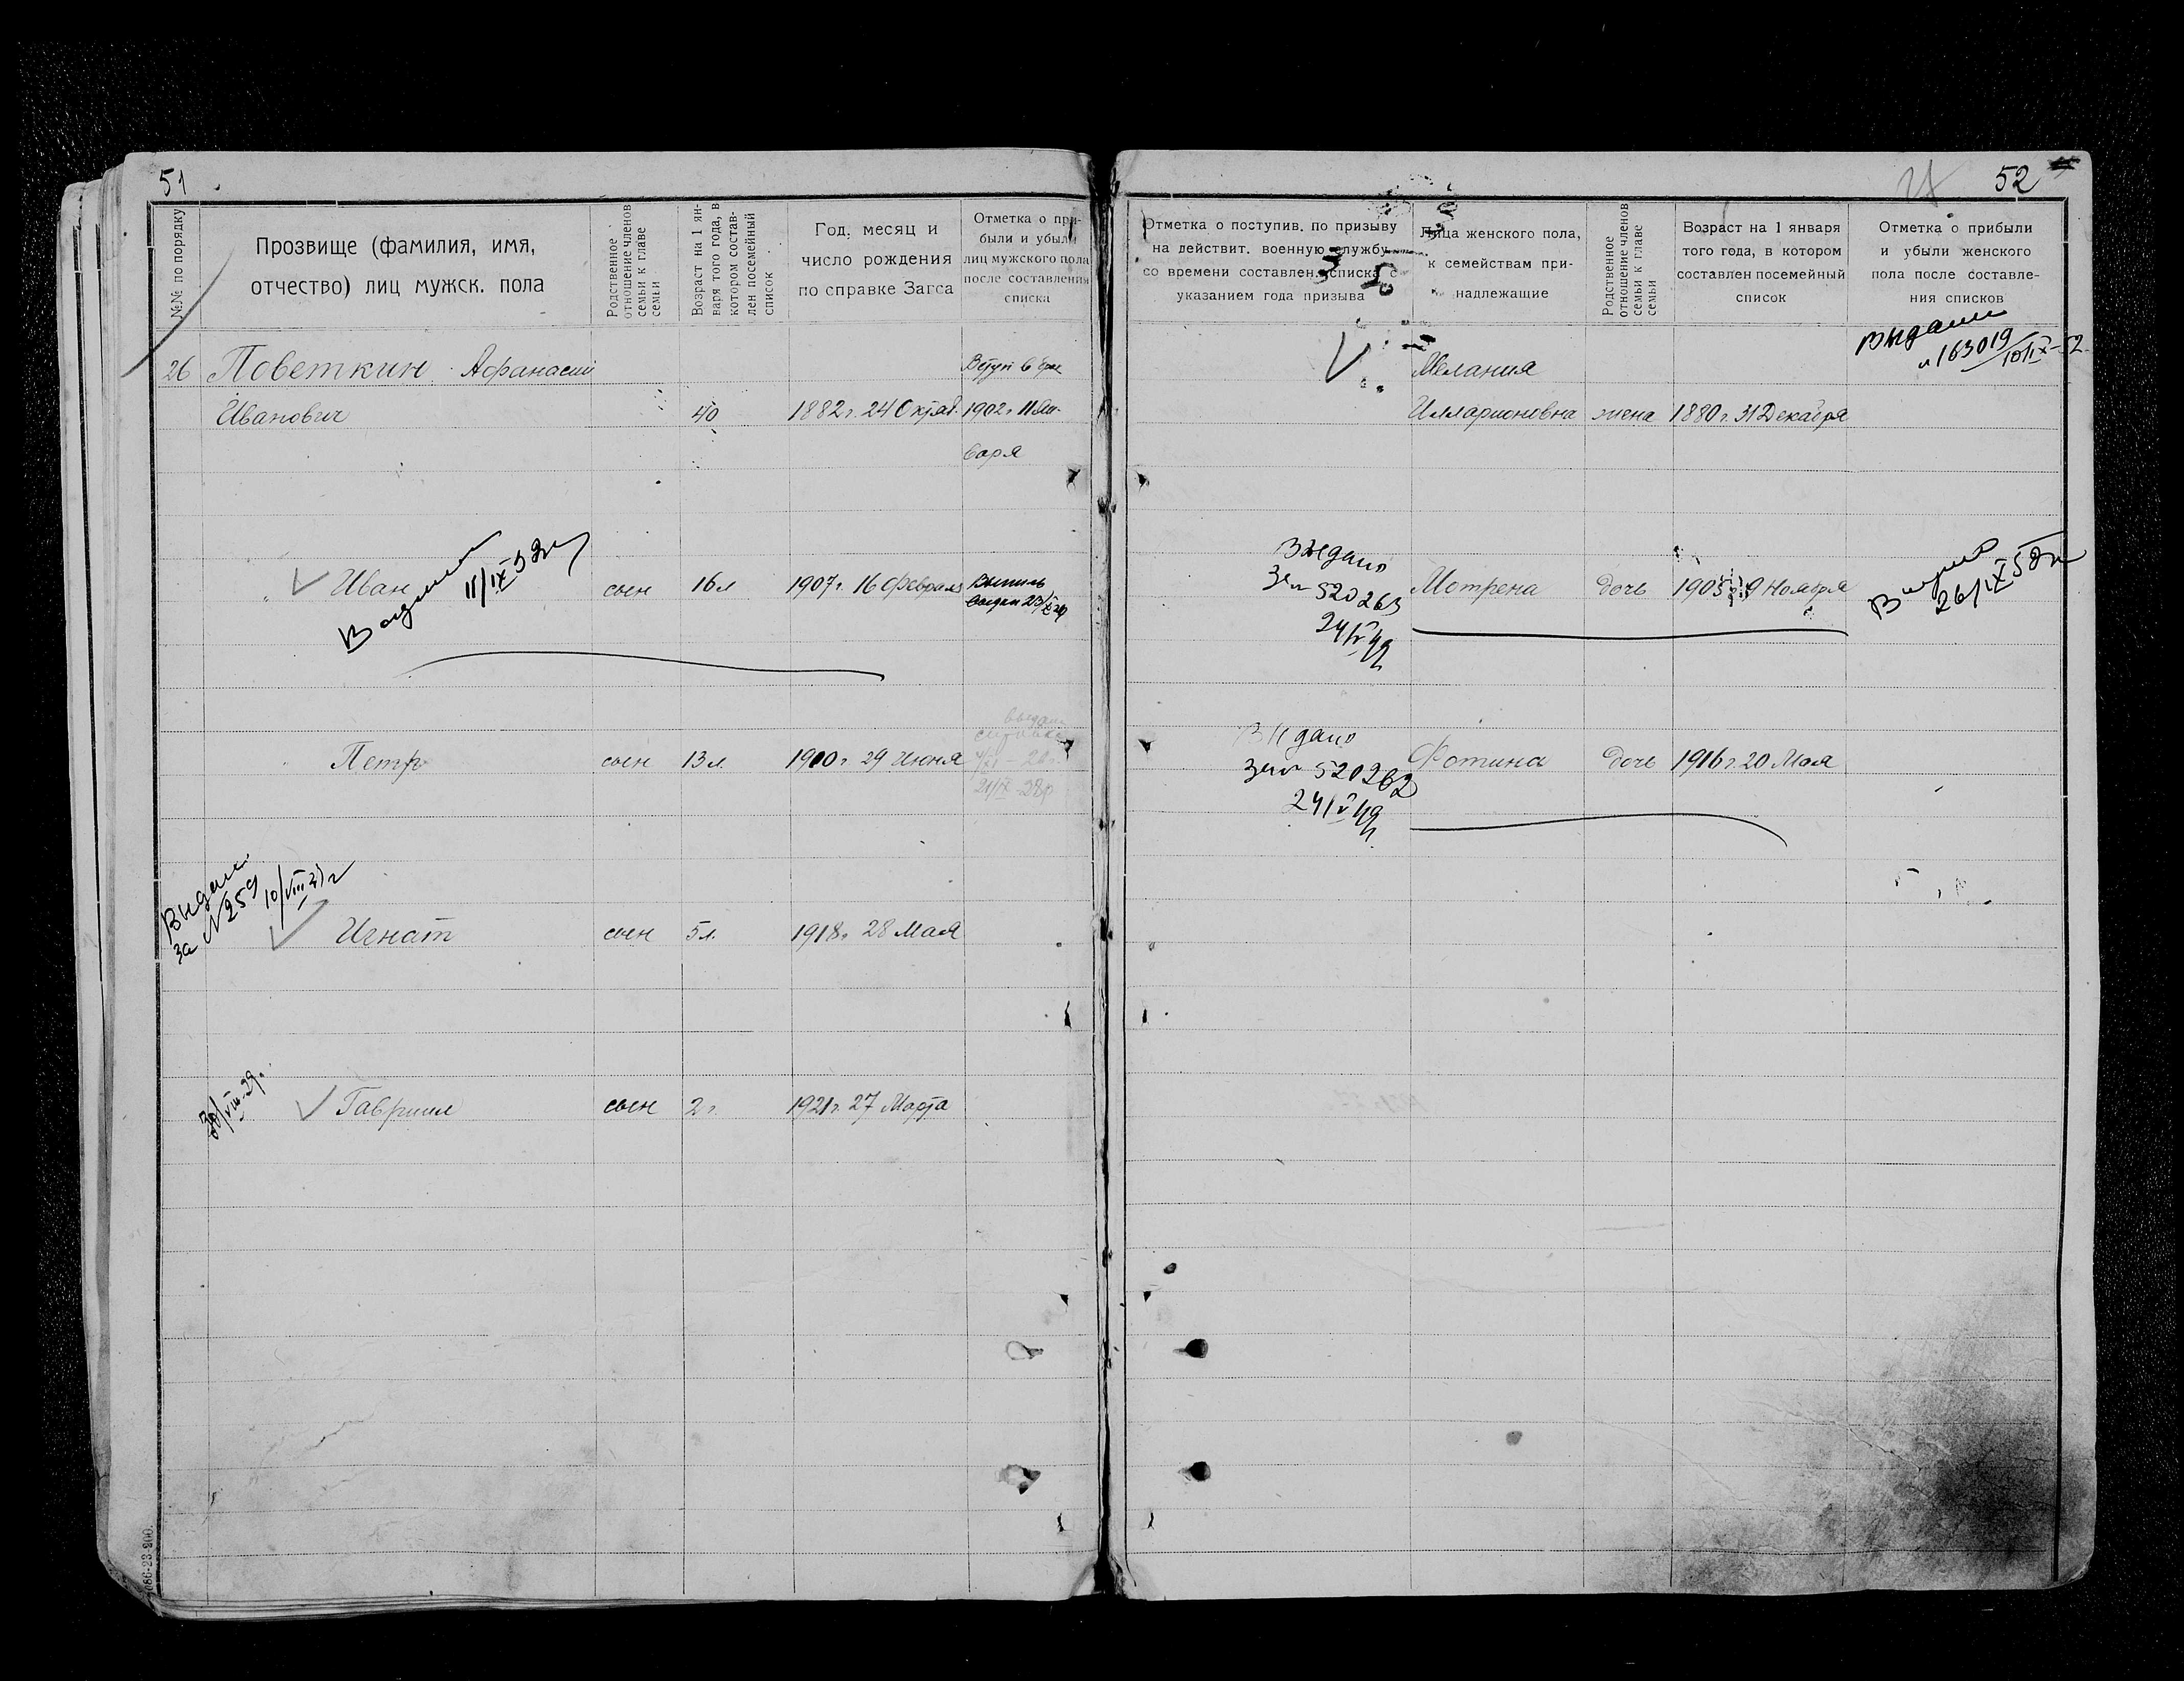 51
№№ по порядку
Прозвище (фамилия, имя,
отчество) лиц мужск. пола
Родственное
отношение членов
семьи к главе
семьи
Возраст на 1 ян-
варя того года, в
котором состав-
лен посемейный
список
Год, месяц и
число рождения
по справке Загса
Отметка о при-
были и убыли
лиц мужского пола
после составления
списка
26 Поветкин Афанасий
Иванович 40 1882 г. 24 Октяб. 1902 г. 11 Ян-
варя
Иван сын 16 л 1907 г. 16 Февраля
11/IX
Петр сын 13 л. 1910 г. 29 Июня
21/IX-28р
Выдан
за N 259
10/VIII
Игнат сын 5 л. 1918 г. 28 Мая
30/VIII-29.
Гавриил сын 2 г. 1921 г. 27 Марта
52
Отметка о поступив. по призыву
на действит. военную службу
со времени составлен. списка с
указанием года призыва
Лица женского пола,
к семействам при-
надлежащие
Родственное
отношение членов
семьи к главе
семьи
Возраст на 1 января
того года, в котором
составлен посемейный
список
Отметка о прибыли
и убыли женского
пола после составле-
ния списков
Мелания
Илларионовна жена 1880 г. 31 Декабря
163019
10/IX-52
Выдано
520263
24/V 49
Мотрена дочь 1905 9 Ноября
26/IX
Выдано
520262
24/V 49
Фотина дочь 1916 г. 20 Мая